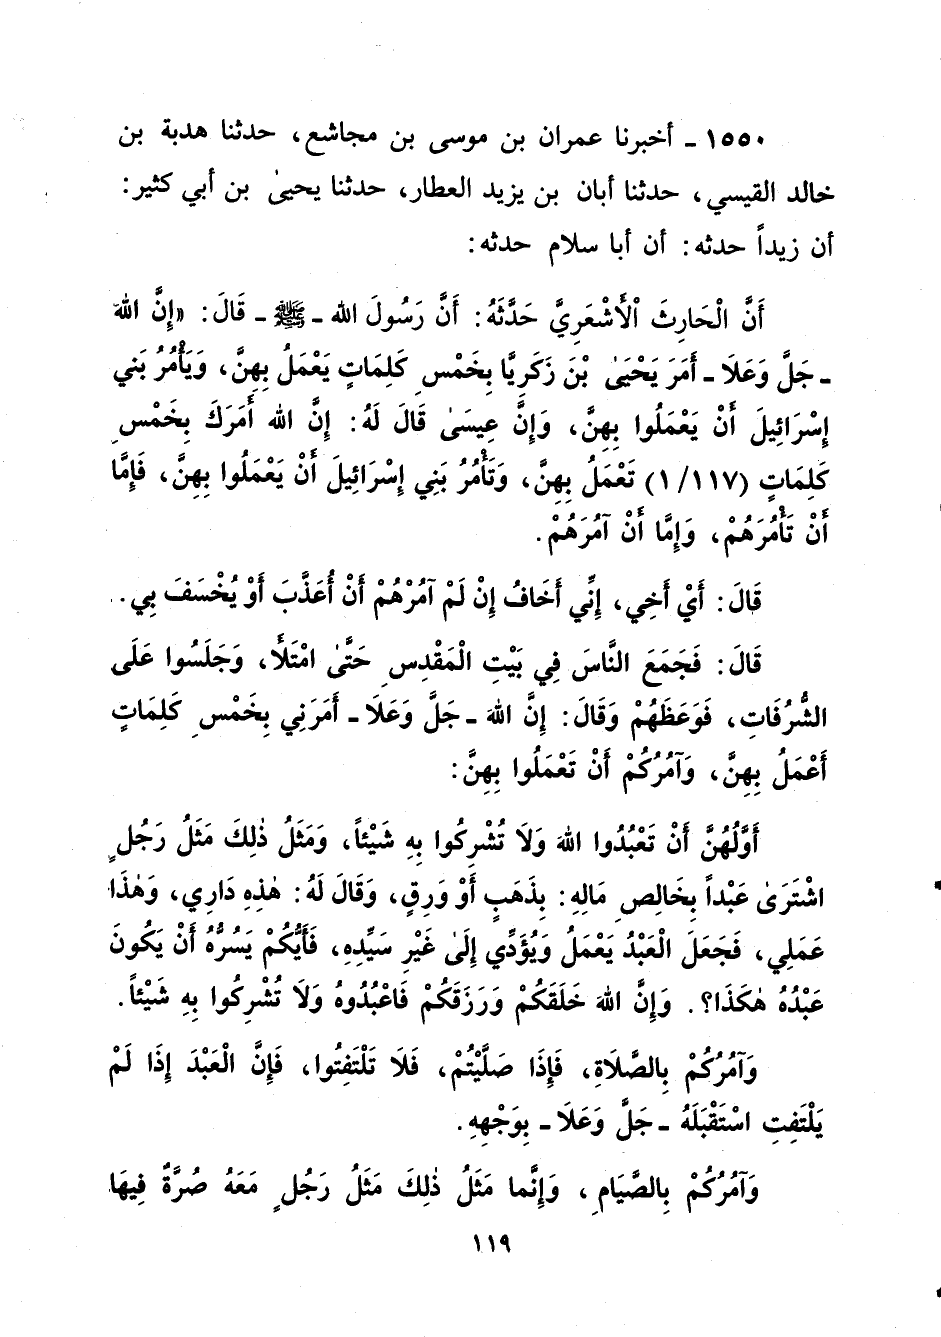 ١٥٥٠ ـ أخبرنا عمران بن موسى بن مجاشع، حدثنا هدبة بن
خالد القيسي، حدثنا أبان بن يزيد العطار، حدثنا يحيىٰ بن أبي كثير:
أن زيداً حدثه: أن أبا سلام حدثه:
أَنَّ الْحَارِثَ الْأَشْعَرِيَّ حَدَّثَهُ: أَنَّ رَسُولَ الله ـ ﷺ ـ قَالَ: «إِنَّ اللهَ
ـ جَلَّ وَعَلَا ـ أَمَرَ يَحْيَىٰ بْنَ زَكَرِيَّا بِخَمْسِ كَلِمَاتٍ يَعْمَلُ بِهِنَّ، وَيَأْمُرُ بَنِي
إِسْرَائِيلَ أَنْ يَعْمَلُوا بِهِنَّ، وَإِنَّ عِيسَىٰ قَالَ لَهُ: إِنَّ الله أَمَرَكَ بِخَمْسِ
كَلِمَاتٍ (١/١١٧) تَعْمَلُ بِهِنَّ، وَتَأْمُرُ بَنِي إِسْرَائِيلَ أَنْ يَعْمَلُوا بِهِنَّ، فَإِمَّا
أَنْ تَأْمُرَهُمْ، وَإِمَّا أَنْ آمُرَهُمْ.
قَالَ: أَيْ أَخِي، إِنِّي أَخَافُ إِنْ لَمْ آمُرْهُمْ أَنْ أُعَذَّبَ أَوْ يُخْسَفَ بِي.
قَالَ: فَجَمَعَ النَّاسَ فِي بَيْتِ الْمَقْدِسِ حَتَّىٰ امْتَلَأَ، وَجَلَسُوا عَلَى
الشُّرُفَاتِ، فَوَعَظَهُمْ وَقَالَ: إِنَّ اللهَ ـ جَلَّ وَعَلَا ـ أَمَرَنِي بِخَمْسِ كَلِمَاتٍ
أَعْمَلُ بِهِنَّ، وَآمُرُكُمْ أَنْ تَعْمَلُوا بِهِنَّ:
أَوَّلُهُنَّ أَنْ تَعْبُدُوا اللهَ وَلَا تُشْرِكُوا بِهِ شَيْئاً، وَمَثَلُ ذٰلِكَ مَثَلُ رَجُلٍ
اشْتَرَىٰ عَبْداً بِخَالِصِ مَالِهِ: بِذَهَبٍ أَوْ وَرِقٍ، وَقَالَ لَهُ: هٰذِهِ دَارِي، وَهٰذَا
عَمَلِي، فَجَعَلَ الْعَبْدُ يَعْمَلُ وَيُؤَدِّي إِلَىٰ غَيْرِ سَيِّدِهِ، فَأَيُّكُمْ يَسُرُّهُ أَنْ يَكُونَ
عَبْدُهُ هٰكَذَا؟. وَإِنَّ اللهَ خَلَقَكُمْ وَرَزَقَكُمْ فَاعْبُدُوهُ وَلَا تُشْرِكُوا بِهِ شَيْئاً.
وَآمُرُكُمْ بِالصَّلَاةِ، فَإِذَا صَلَّيْتُمْ، فَلَا تَلْتَفِتُوا، فَإِنَّ الْعَبْدَ إِذَا لَمْ
يَلْتَفِتِ اسْتَقْبَلَهُ ـ جَلَّ وَعَلَا ـ بِوَجْهِهِ.
وَآمُرُكُمْ بِالصِّيَامِ، وَإِنَّما مَثَلُ ذٰلِكَ مَثَلُ رَجُلٍ مَعَهُ صُرَّةٌ فِيهَا
١١٩